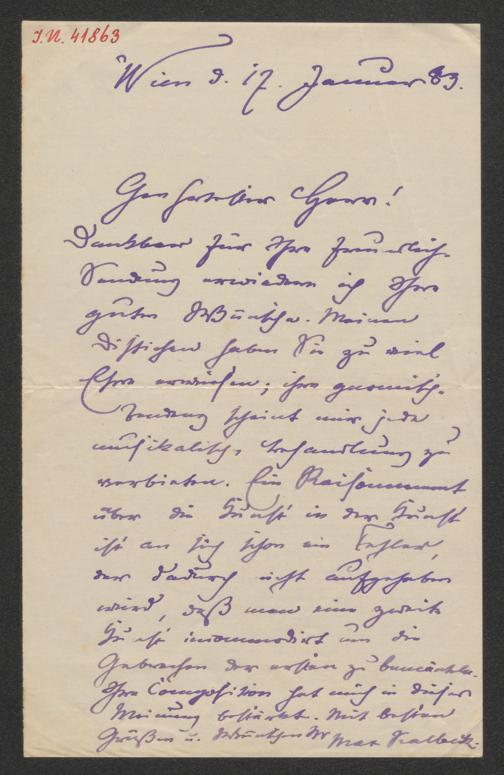 I.N. 41863
Wien d. 17. Januar 83.
Geehrtester Herr!
Dankbar für Ihre freundliche
Sendung erwiedere ich Ihre
guten Wünsche. Meinen
Distichen haben Sie zu viel
Ehre erwiesen; ihre gnomische
Tendenz scheint mir jede
musikalische Behandlung zu
verbieten. Ein Raisonnement
über die Kunst in der Kunst
ist an sich schon ein Fehler,
der dadurch nicht aufgehoben
wird, daß man eine zweite
Kunst incommodirt um die
Gebrechen der ersten zu bemänteln.
Ihre Composition hat mich in dieser
Meinung bestärkt. Mit besten
Grüßen u. Wünschen Ihr Max Kalbeck.